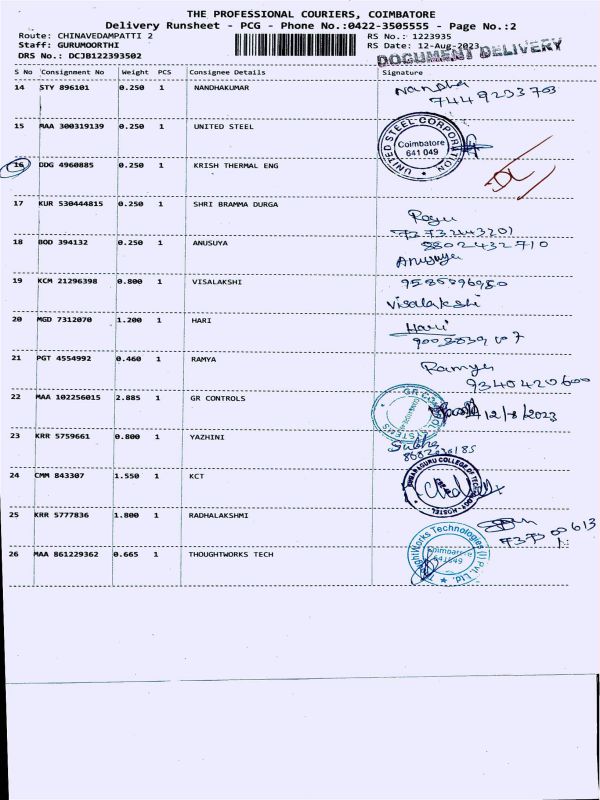 THE PROFESSIONAL COURIERS, COIMBATORE
Delivery Runsheet - PCG - Phone No.:0422-3505555 - Page No.:2
Route: CHINAVEDAMPATTI 2 RS No.: 1223935
Staff: GURUMOORTHI RS Date: 12-Aug-2023
DRS No.: DCJB122393502 DOCUMENT DELIVERY
S No Consignment No Weight PCS Consignee Details Signature
14 STY 896101 0.250 1 NANDHAKUMAR Nandha
7449233703
15 MAA 300319139 0.250 1 UNITED STEEL UNITED STEEL CORPORATION Coimbatore 641 049
16 DDG 4960885 0.250 1 KRISH THERMAL ENG
17 KUR 530444815 0.250 1 SHRI BRAMMA DURGA
18 BOD 394132 0.250 1 ANUSUYA 8802432710
Anusuya
19 KCM 21296398 0.800 1 VISALAKSHI
Visalakshi
20 MGD 7312070 1.200 1 HARI Hari
21 PGT 4554992 0.460 1 RAMYA Ramya
9340420600
22 MAA 102256015 2.885 1 GR CONTROLS 12/8/2023
23 KRR 5759661 0.800 1 YAZHINI Subha
24 CMM 843307 1.550 1 KCT KUMARAGURU COLLEGE OF TECHNOLOGY - HOSTEL
25 KRR 5777836 1.800 1 RADHALAKSHMI
26 MAA 861229362 0.665 1 THOUGHTWORKS TECH ThoughtWorks Technologies (I) Pvt. Ltd. Coimbatore 641049